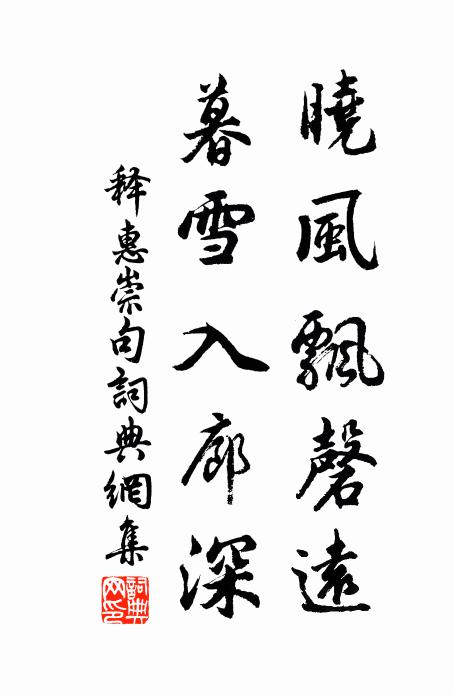 曉風飄磬遠
暮雪入廊深
释惠崇句詞典網集
詞典網印